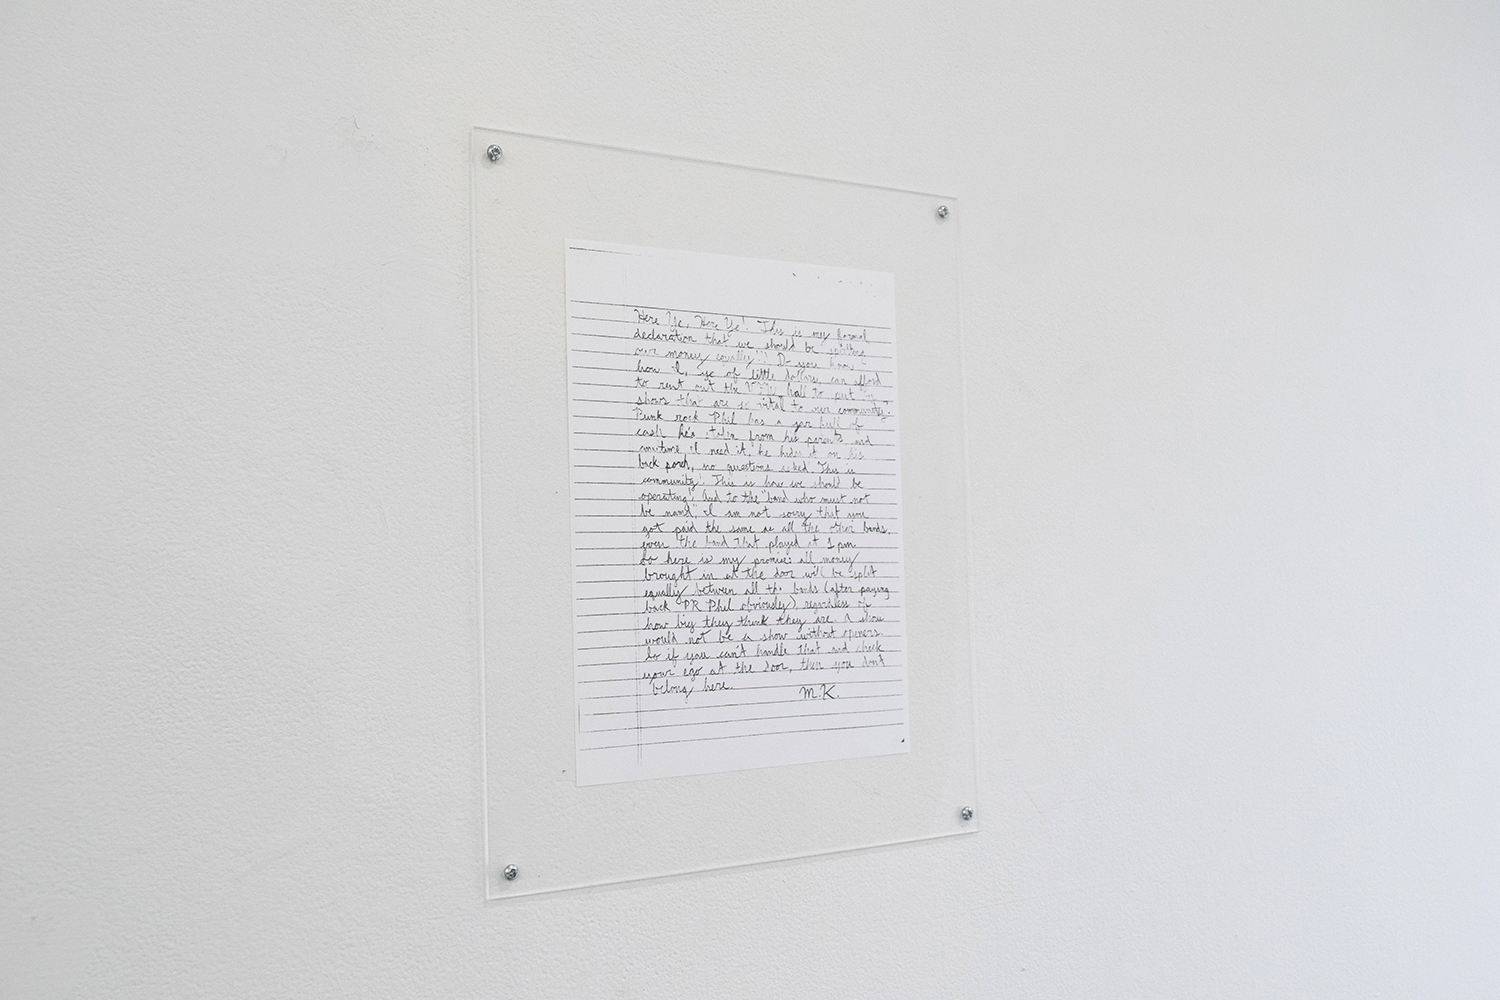 Here Ye, Here Ye! This is my formal
declaration that we should be splitting
our money equally!!! D you know
how I, ye of little dollars, can afford
to rent out the VFW hall to put on
shows that are so vital to our community?
Punk rock Phil has a jar full of
cash he's stolen from his parents and
anytime I need it, he hides it on his
back porch, no questions asked. This is
community! This is how we should be
operating! And to the "band who must not
be named," I am not sorry that you
got paid the same as all the other bands,
even the band that played at 1 pm
So here is my promise: all money
brought in at the door will be split
equally between all the bands (after paying
back PR Phil obviously) regardless of
how big they think they are. A show
would not be a show without openers.
So if you can't handle that and check
your ego at the door, then you don't
belong here.
M.K.